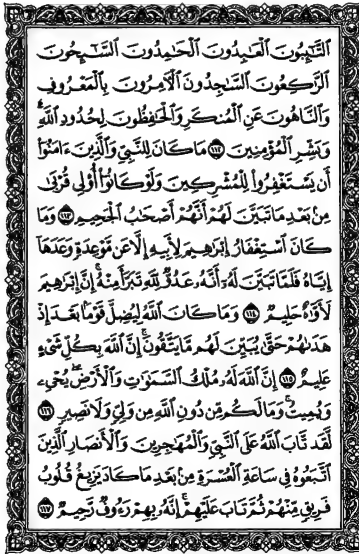 ٱلتَّـٰٓئِبُونَ ٱلْعَـٰبِدُونَ ٱلْحَـٰمِدُونَ ٱلسَّـٰٓئِحُونَ
ٱلرَّٰكِعُونَ ٱلسَّـٰجِدُونَ ٱلْـَٔامِرُونَ بِٱلْمَعْرُوفِ
وَٱلنَّاهُونَ عَنِ ٱلْمُنكَرِ وَٱلْحَـٰفِظُونَ لِحُدُودِ ٱللَّهِ ۗ
وَبَشِّرِ ٱلْمُؤْمِنِينَ ١١٢ مَا كَانَ لِلنَّبِيِّ وَٱلَّذِينَ ءَامَنُوٓا۟
أَن يَسْتَغْفِرُوا۟ لِلْمُشْرِكِينَ وَلَوْ كَانُوٓا۟ أُو۟لِى قُرْبَىٰ
مِنۢ بَعْدِ مَا تَبَيَّنَ لَهُمْ أَنَّهُمْ أَصْحَـٰبُ ٱلْجَحِيمِ ١١٣ وَمَا
كَانَ ٱسْتِغْفَارُ إِبْرَٰهِيمَ لِأَبِيهِ إِلَّا عَن مَّوْعِدَةٍ وَعَدَهَآ
إِيَّاهُ فَلَمَّا تَبَيَّنَ لَهُۥٓ أَنَّهُۥ عَدُوٌّ لِّلَّهِ تَبَرَّأَ مِنْهُ ۚ إِنَّ إِبْرَٰهِيمَ
لَأَوَّٰهٌ حَلِيمٌ ١١٤ وَمَا كَانَ ٱللَّهُ لِيُضِلَّ قَوْمًۢا بَعْدَ إِذْ
هَدَىٰهُمْ حَتَّىٰ يُبَيِّنَ لَهُم مَّا يَتَّقُونَ ۚ إِنَّ ٱللَّهَ بِكُلِّ شَىْءٍ
عَلِيمٌ ١١٥ إِنَّ ٱللَّهَ لَهُۥ مُلْكُ ٱلسَّمَـٰوَٰتِ وَٱلْأَرْضِ ۖ يُحْىِۦ
وَيُمِيتُ ۚ وَمَا لَكُم مِّن دُونِ ٱللَّهِ مِن وَلِىٍّ وَلَا نَصِيرٍ ١١٦
لَّقَد تَّابَ ٱللَّهُ عَلَى ٱلنَّبِىِّ وَٱلْمُهَـٰجِرِينَ وَٱلْأَنصَارِ ٱلَّذِينَ
ٱتَّبَعُوهُ فِى سَاعَةِ ٱلْعُسْرَةِ مِنۢ بَعْدِ مَا كَادَ يَزِيغُ قُلُوبُ
فَرِيقٍ مِّنْهُمْ ثُمَّ تَابَ عَلَيْهِمْ ۚ إِنَّهُۥ بِهِمْ رَءُوفٌ رَّحِيمٌ ١١٧